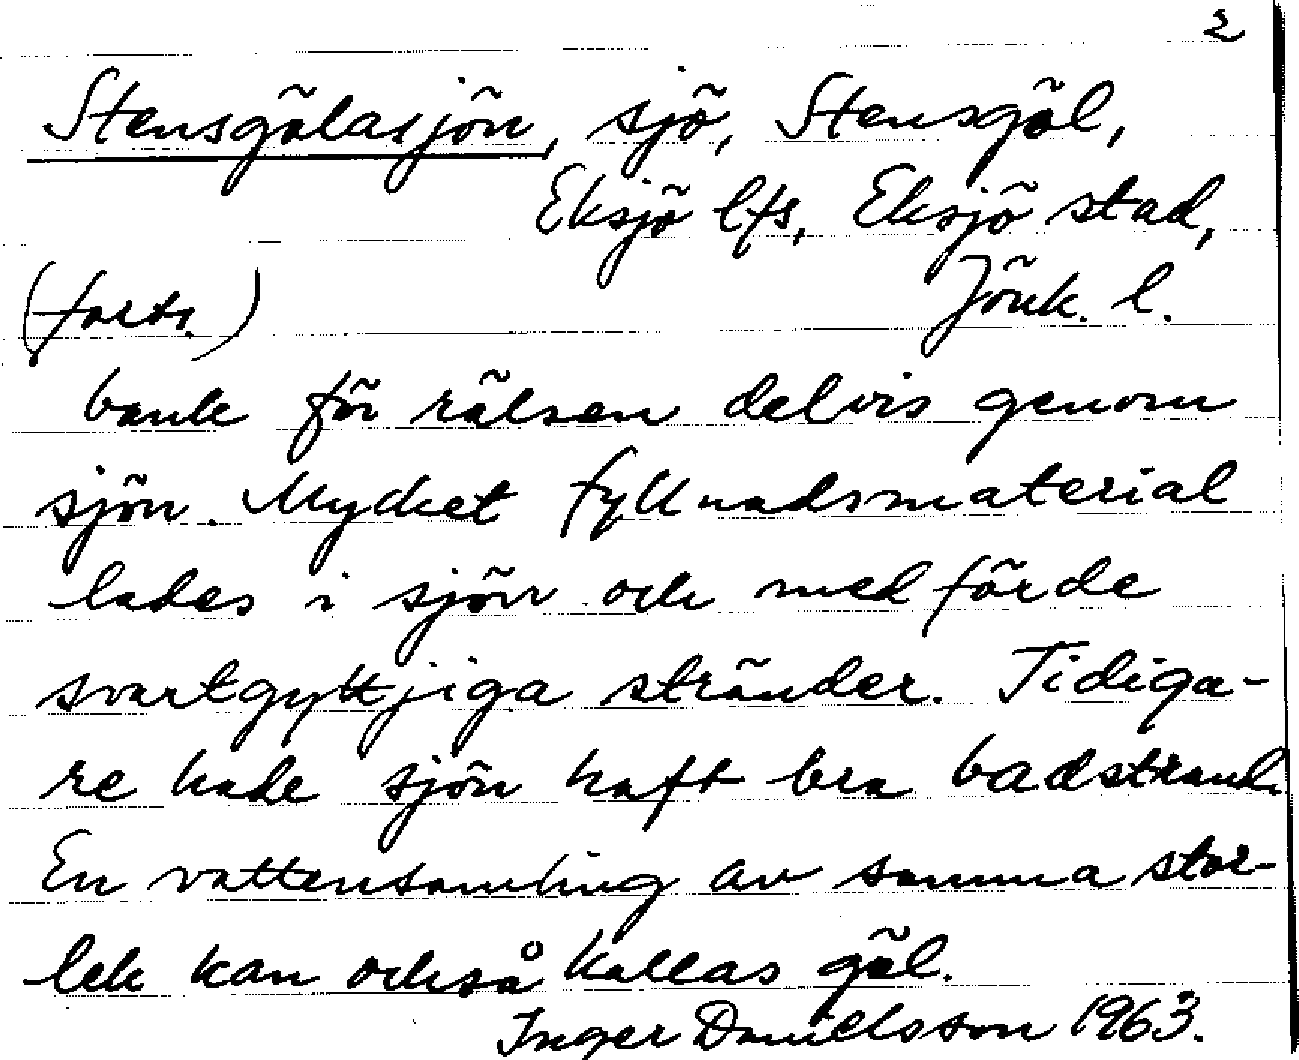 2
Stensgölasjön, sjö, Stensgöl,
Eksjö lfs, Eksjö stad,
(forts.) Jönk. l.
bank för rälsen delvis genom
sjön. Mycket fyllnadsmaterial
lades i sjön och medförde
svartgyttjiga stränder. Tidiga-
re hade sjön haft bra badstrand.
En vattensamling av samma stor-
lek kan också kallas göl.
Inger Danielsson 1963.